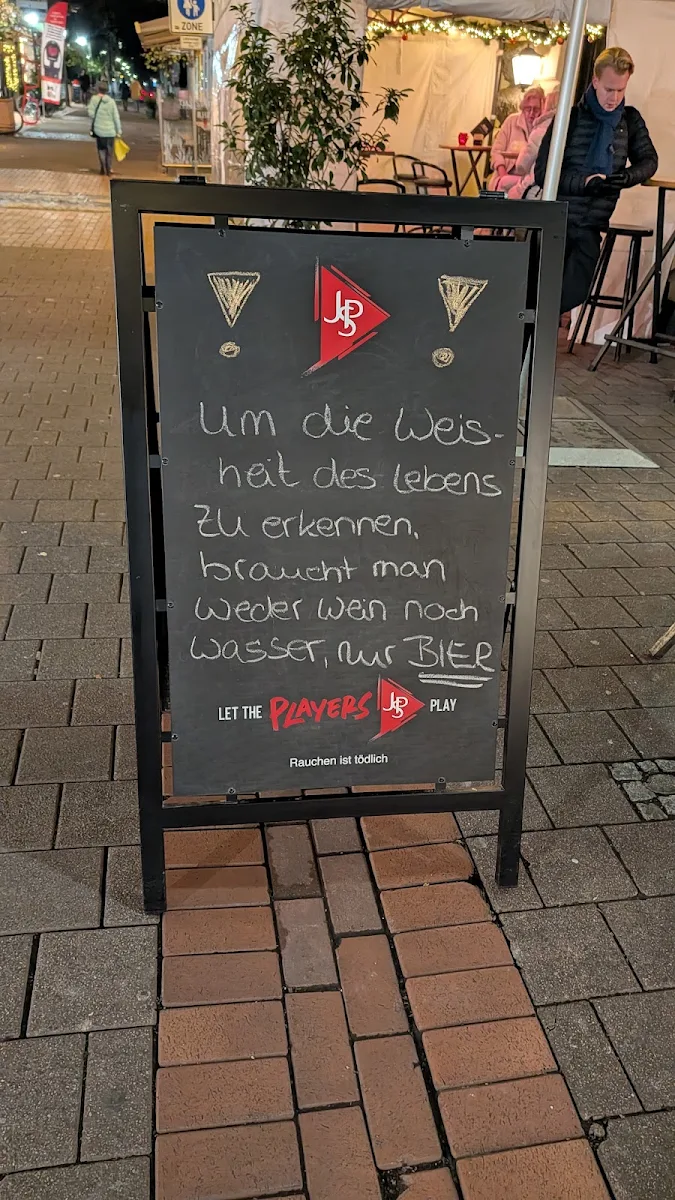 ZONE
! JPS !
Um die Weis-
heit des Lebens
zu erkennen,
braucht man
weder Wein noch
Wasser, nur BIER
LET THE PLAYERS JPS PLAY
Rauchen ist tödlich